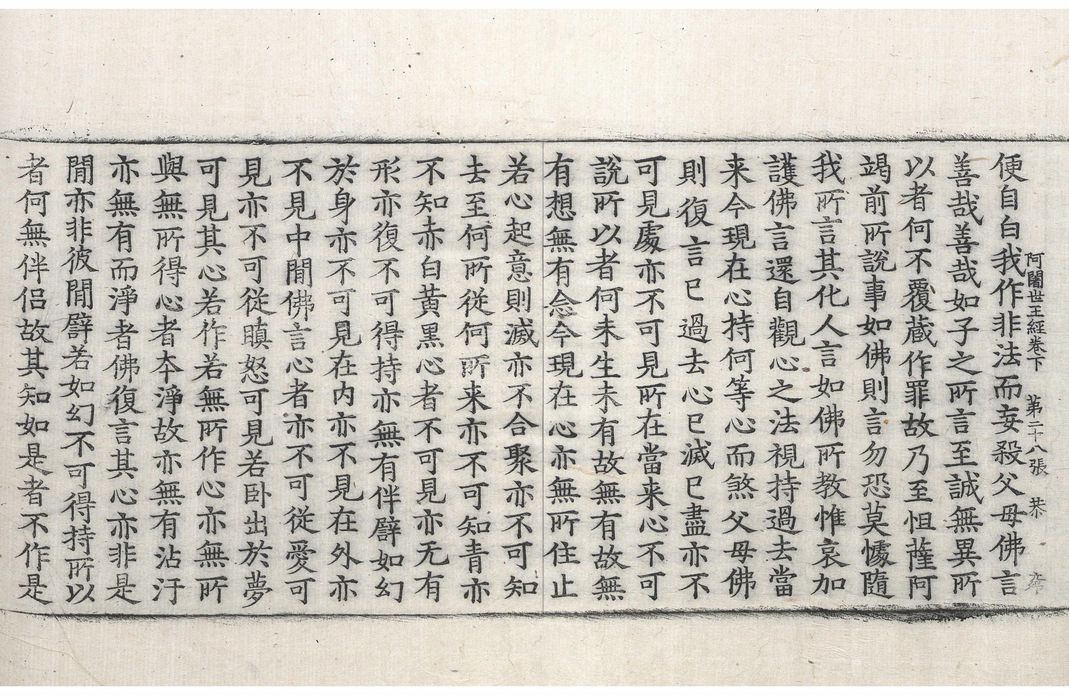 阿闍世王經卷下　第二十八張　恭
便自白我作非法而妄殺父母佛言
善哉善哉如子之所言至誠無異所
以者何不覆蔵作罪故乃至怛薩阿
竭前所説事如佛則言勿恐莫懅隨
我所言其化人言如佛所教惟哀加
護佛言還自觀心之法視持過去當
来今現在心持何等心而煞父母佛
則復言已過去心已滅已盡亦不
可見處亦不可見所在當来心不可
說所以者何未生未有故無有故無
有想無有念今現在心亦無所住止
若心起意則滅亦不合聚亦不可知
去至何所従何所来亦不可知青亦
不知赤白黄黑心者不可見亦无有
形亦復不可得持亦無有伴譬如幻
於身亦不可見在内亦不見在外亦
不見中閒佛言心者亦不可従愛可
見亦不可従瞋怒可見若卧出於夢
可見其心若作若無所作心亦無所
與無所得心者夲淨故亦無有沾汙
亦無有而淨者佛復言其心亦非是
閒亦非彼閒譬若如幻不可得持所以
者何無伴侣故其知如是者不作是